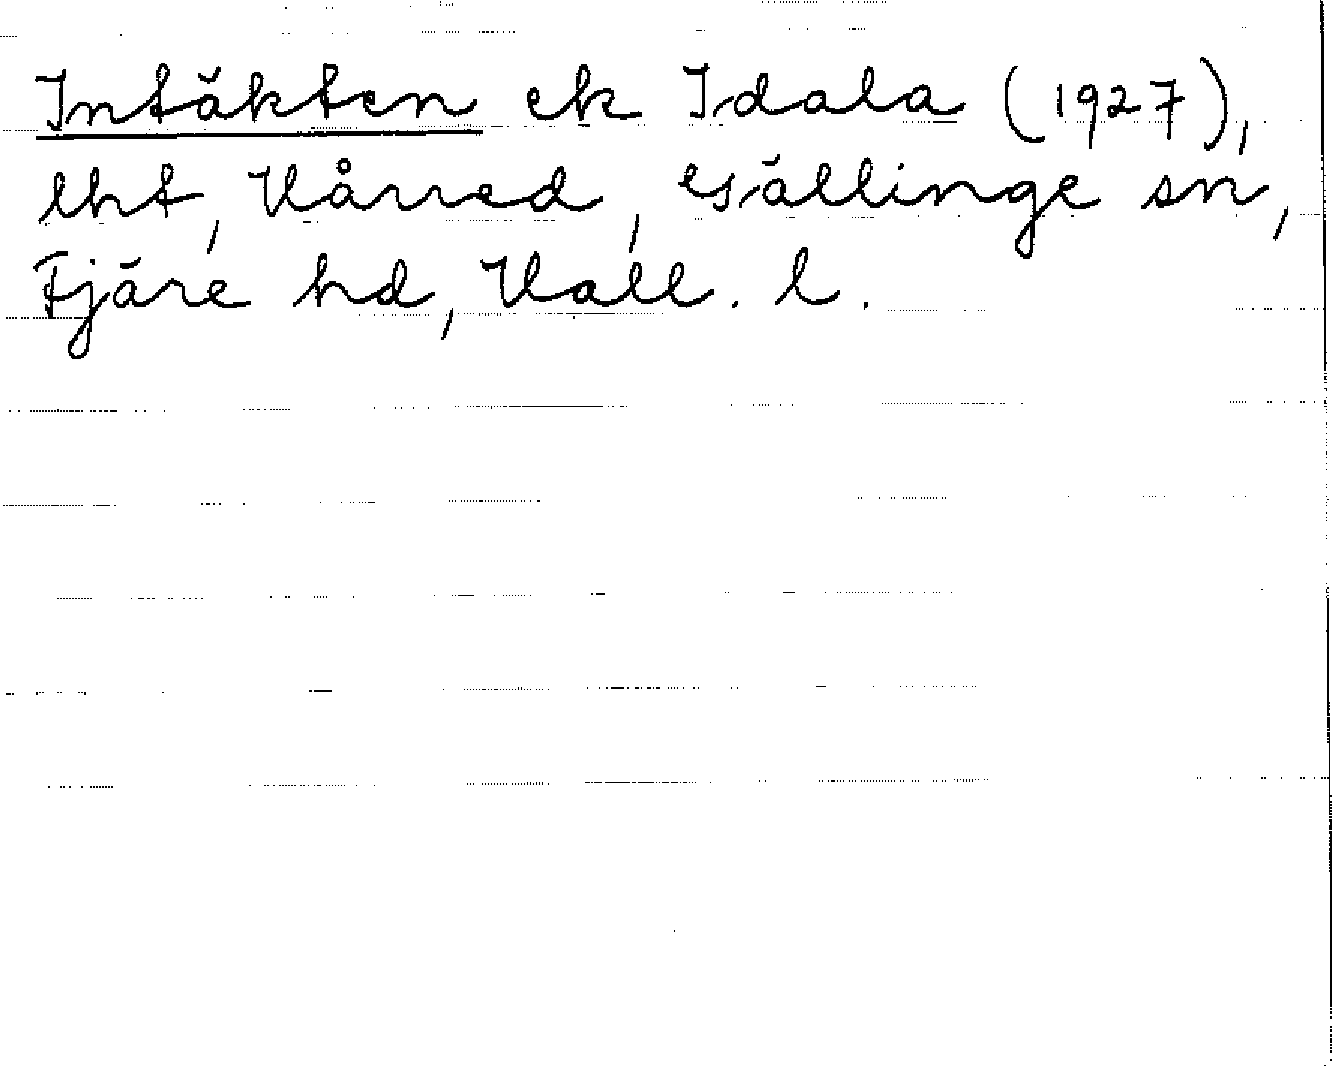 Intäkten ek Idala (1927),
lht, Hårred, Gällinge sn,
Fjäre hd, Hall. l.